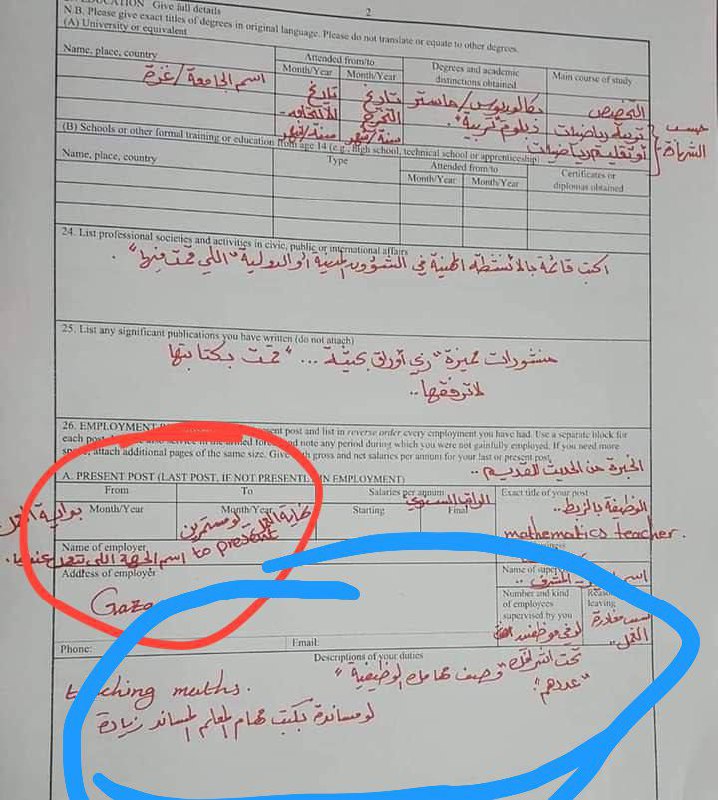 2
EDUCATION Give full details
N.B. Please give exact titles of degrees in original language. Please do not translate or equate to other degrees.
(A) University or equivalent
Name, place, country
Attended from/to
Month/Year
Month/Year
Degrees and academic distinctions obtained
Main course of study
اسم الجامعة/غزة
تاريخ
تاريخ التخرج
سنة/شهر
سنة/شهر
بكالوريوس/ماستر
دبلوم "تربية".
التخصص
حسب الشهادة
(B) Schools or other formal training or education from age 14 (e.g., high school, technical school or apprenticeship)
Name, place, country
Type
Attended from/to
Month/Year
Month/Year
Certificates or diplomas obtained
24. List professional societies and activities in civic, public or international affairs
اكتب قائمة بالأنشطة المهنية في الشؤون المدنية أو الدولية "اللي قمت فيها".
25. List any significant publications you have written (do not attach)
منشورات مميزة "زي أوراق بحثية ... " قمت بكتابتها
لا ترفقها..
26. EMPLOYMENT
present post and list in reverse order every employment you have had. Use a separate block for
each post.
note any period during which you were not gainfully employed. If you need more
space, attach additional pages of the same size. Give both gross and net salaries per annum for your last or present post.
الخبرة من الحديث للقديم..
A. PRESENT POST (LAST POST, IF NOT PRESENTLY IN EMPLOYMENT)
From
To
Salaries per annum
Exact title of your post
Month/Year
Month/Year
Starting
Final
الراتب السنوي
الوظيفة بالزبط..
mathematics teacher.
بداية
لو مستمرين
to present
Name of employer
اسم الجهة اللي
Address of employer
Gaza
Name of supervisor
اسم
المشرف..
Number and kind of employees supervised by you
Reason leaving
لو في موظفين
تحت اشرافك
"عددهم".
سبب مغادرة العمل..
Phone:
Email:
Descriptions of your duties
teaching maths.
"وصف مهامك الوظيفية"
لو مساندة بكتب مهام المعلم المساند زيادة